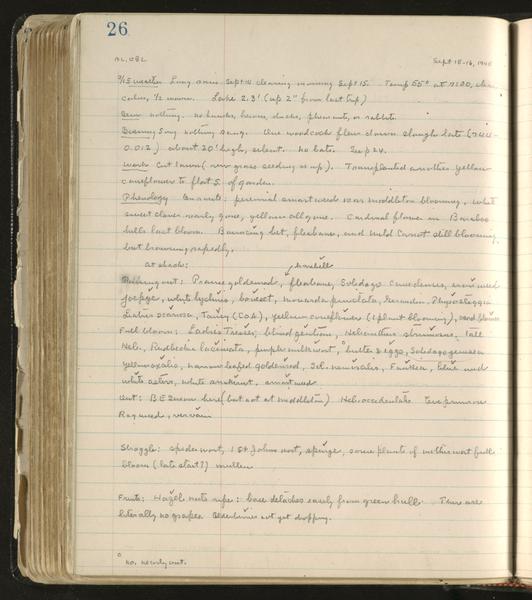 26
AL, CBL Sept 15-16, 1945
9/15 weather Long rains Sept 14 clearing morning Sept 15. Temp 55° at clear
calm, 1/2 moon. Lake 2.3' (up 2" from last trip)
Seen nothing. no hawks, herons, ducks, pheasants, or rabbits.
Evening Song nothing sang. One woodcock flew down slough late
0.012) about 20' high, silent. no bats.
Work Cut lawn (new grass seeding is up). Transplanted another yellow
coneflower to float S. of garden.
Phenology Enroute: perennial smartweed near Middleton blooming, white
sweet clover nearly gone, yellow all gone. Cardinal flower in Baraboo
hills last bloom. Bouncing bet, fleabane, and wild carrot still blooming,
but browning rapidly.
at shack: horsemint
Burning out: Prairie goldenrod, fleabane, Solidago canadensis,
joepye, white lychnis, boneset, monarda punctata, geranium, Physostegia
Liatris scariosa, Tansy yellow coneflower (1 plant blooming),
Full bloom: Ladies Tresses, blind gentian, Helianthus strumosus, tall
Heli, Rudbeckia laciniata, purple milkwort, butter & eggs, Solidago
yellow oxalis, narrow leafed goldenrod, Sol. nemoralis, blue and
white asters, white snakeroot, smartweed
Out: B E Susan here (but not at middleton) Heli occidentalis Eveprimrose
Ragweed, vervain
Straggle: spiderwort, 1 St Johns wort, spurge, some plants of motherwort full
bloom (late start?) mullein
Fruits: Hazel nuts ripe: base detaches easily from green hull. There are
literally no grapes. Elderberries not yet dropping.
o no, nearly out.